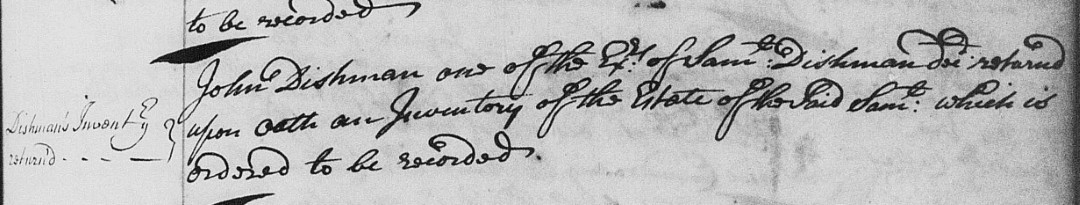 to be recorded
John Dishman one of the Exrs. of Saml. Dishman decd. returnd
upon oath an Inventory of the Estate of the Said Saml. which is
ordered to be recorded.
Dishman's Inventry
returnd - - - -